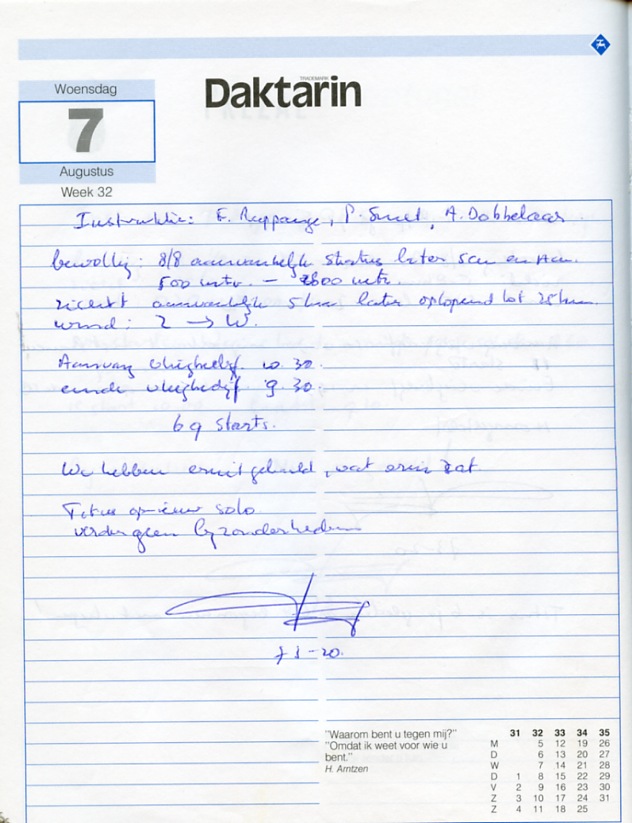 Woensdag
7
Augustus
Week 32
TRADEMARK
Daktarin
Instruktie: F. Ruppange, P. Smet, A. Dobbelaar
bewolking: 8/8 aanvankelijk stratus later scu en
500 mtr. — 2600 mtr.
zicht aanvankelijk 5 km later oplopend tot 25 km.
wind: Z → W.
Aanvang vliegbedijf. 10.30.
einde vliegbedijf 9.30.
69 starts.
We hebben eruit gehaald, wat erin zat
Titus opnieuw solo.
verder geen byzonderheden
"Waarom bent u tegen mij?"
"Omdat ik weet voor wie u
bent."
H. Arntzen
31 32 33 34 35
M 5 12 19 26
D 6 13 20 27
W 7 14 21 28
D 1 8 15 22 29
V 2 9 16 23 30
Z 3 10 17 24 31
Z 4 11 18 25